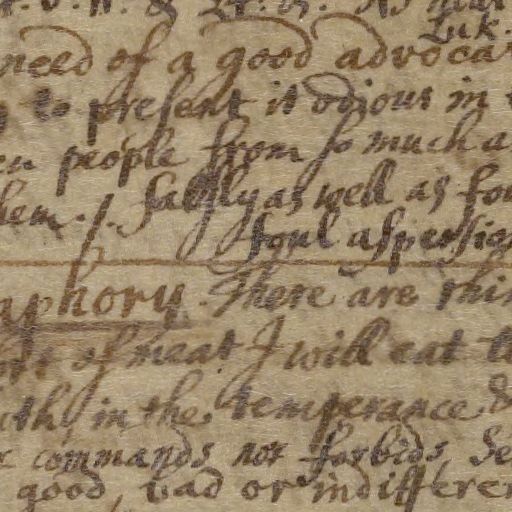 Luk.
need of a good advoca
to present it odious in
people from so much a
hem ./. falsly as well as fou
foul aspersio
aphory. There are thin
ort of meat I will eat t
in the temperance &
commands nor forbids. Se
good, bad or indifferen